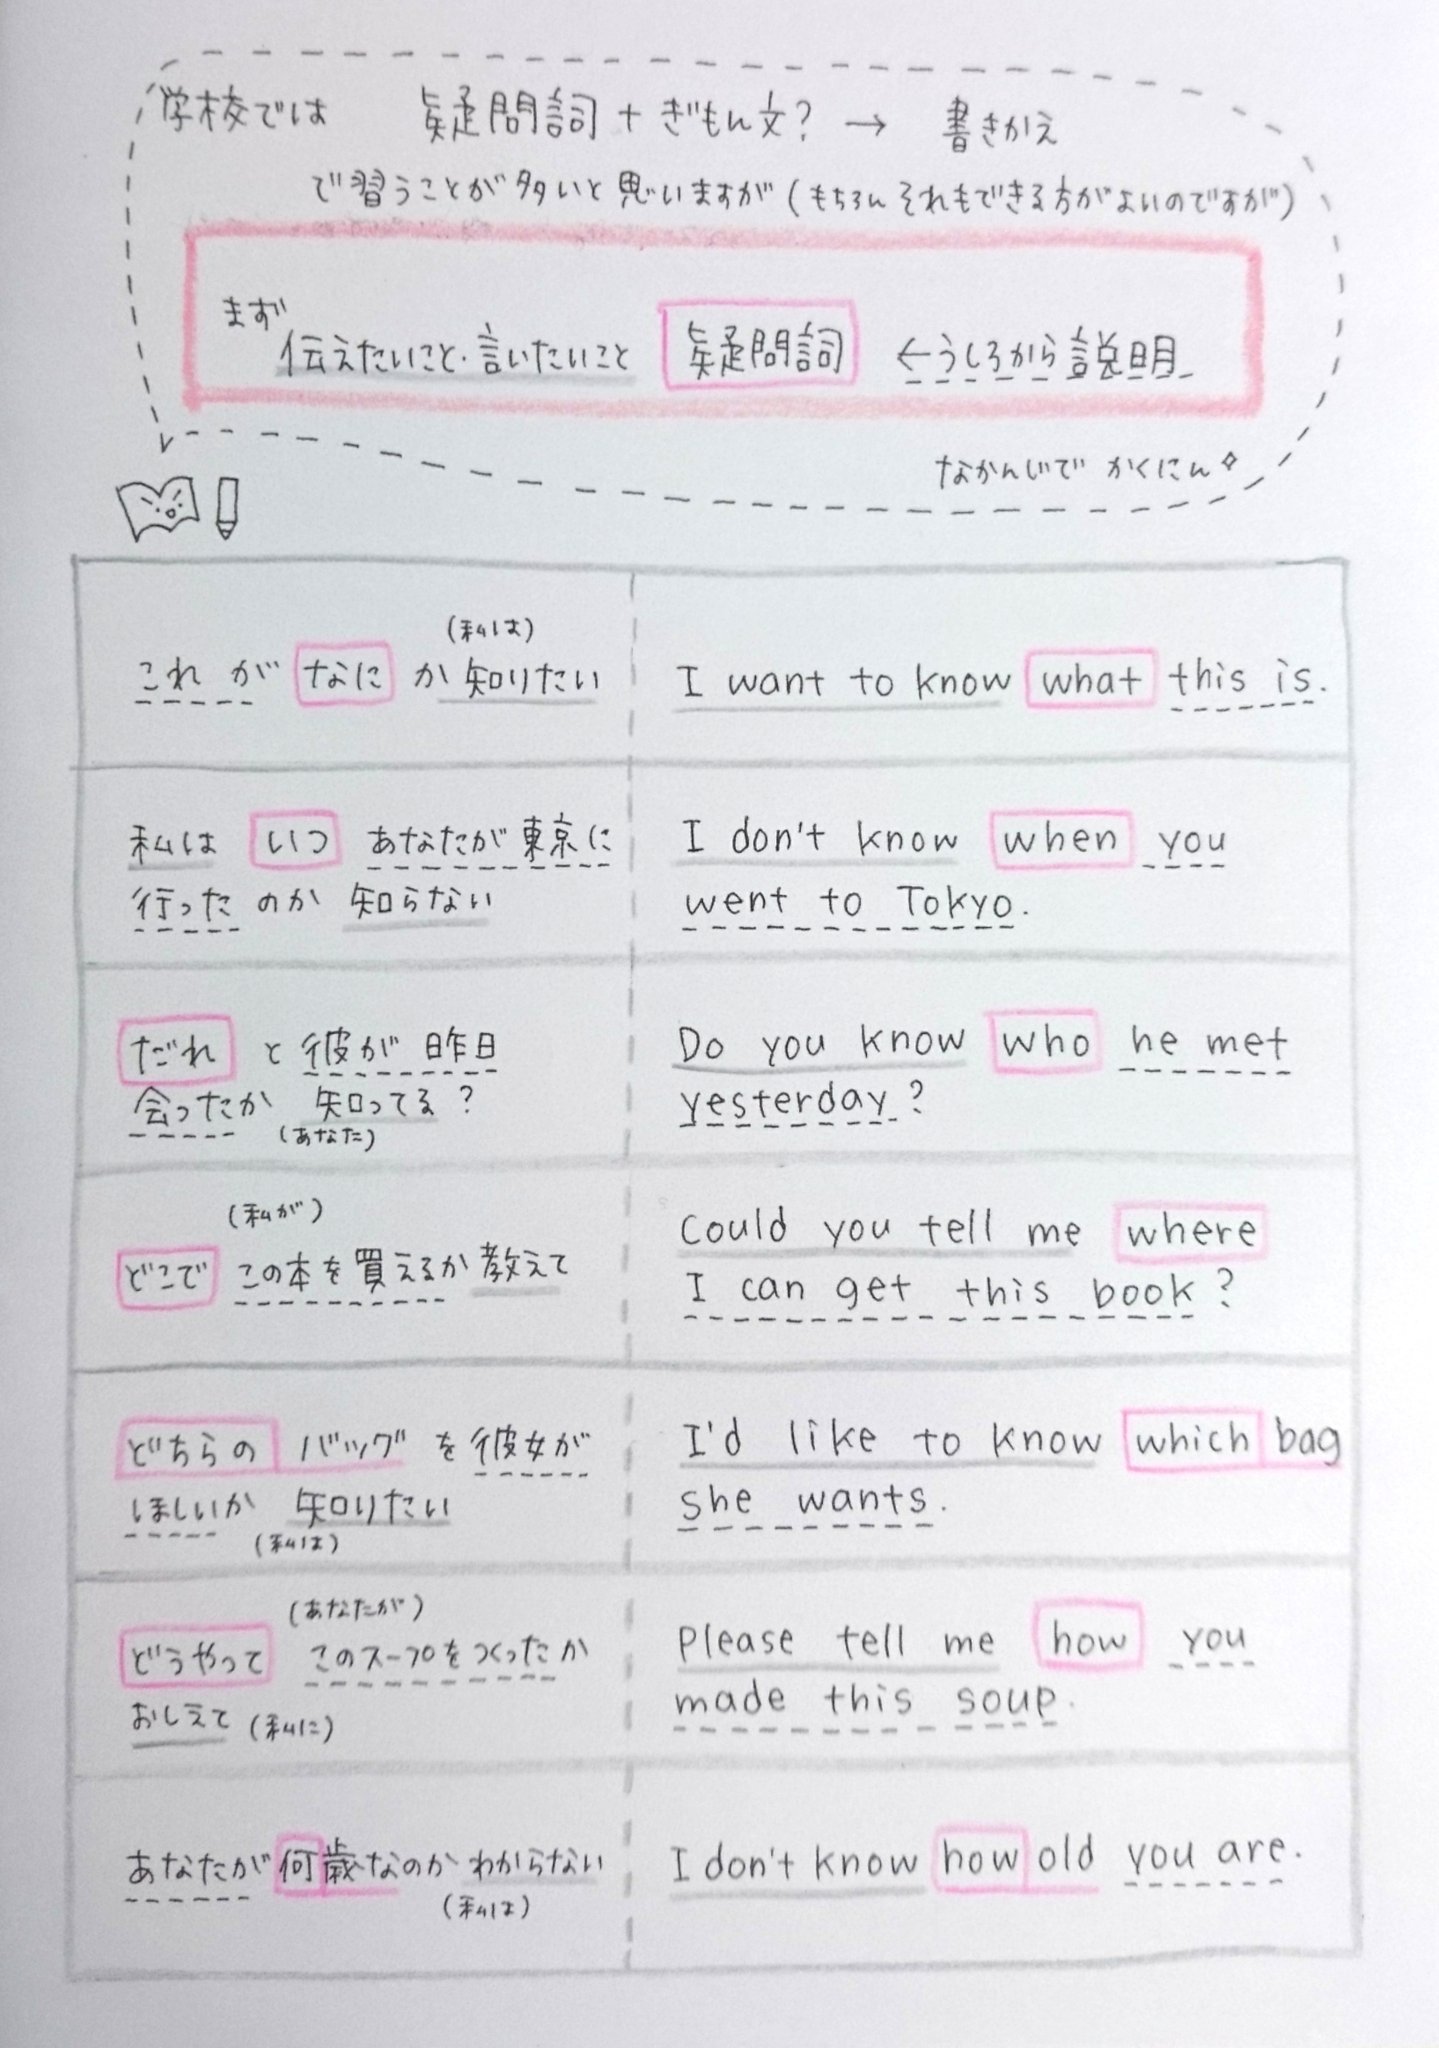 学校では 疑問詞 + ぎもん文? → 書きかえ
で習うことが多いと思いますが(もちろんそれもできる方がよいのですが)
まず
伝えたいこと・言いたいこと 疑問詞 ←うしろから説明
なかんじで かくにん
(私は)
これ が なに か 知りたい
I want to know what this is.
私は いつ あなたが東京に
行った のか 知らない
I don't know when you
went to Tokyo.
だれ と 彼が 昨日
会ったか 知ってる?
(あなた)
Do you know who he met
yesterday?
(私が)
どこで この本を買えるか教えて
Could you tell me where
I can get this book?
どちらの バッグ を 彼女が
ほしいか 知りたい
(私は)
I'd like to know which bag
she wants.
(あなたが)
どうやって このスープをつくったか
おしえて (私に)
Please tell me how you
made this soup.
あなたが何歳なのか わからない
(私は)
I don't know how old you are.